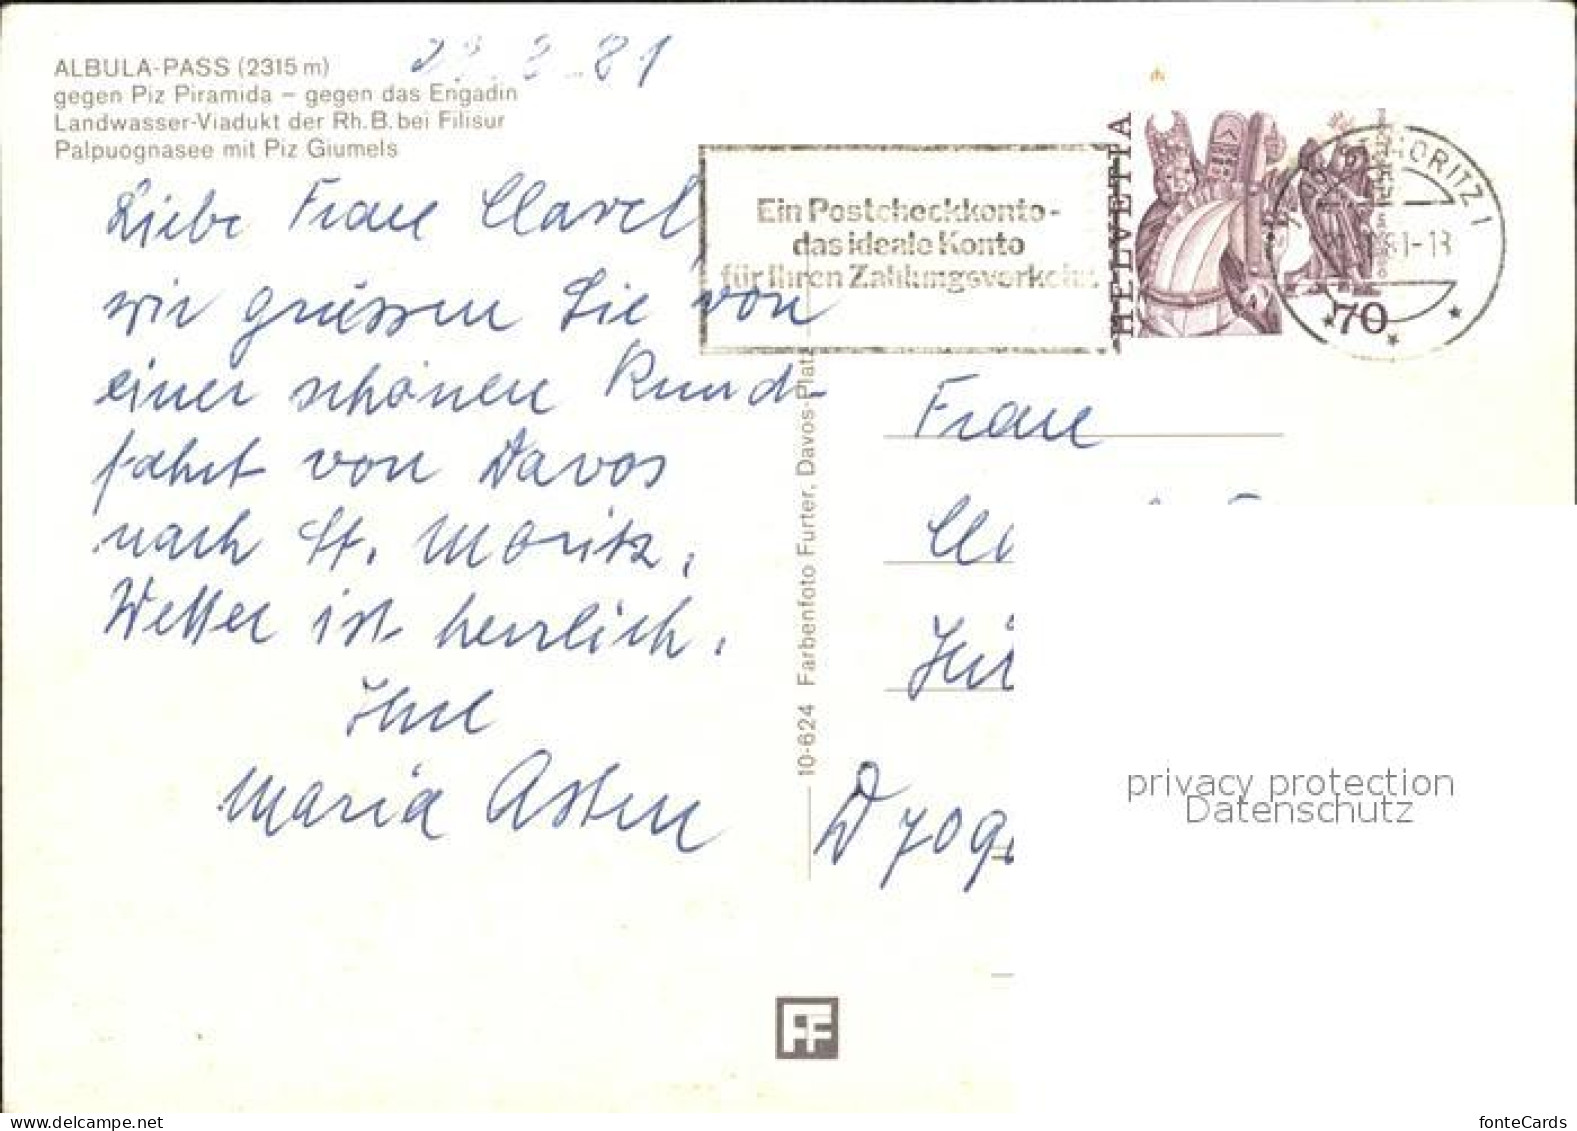 ALBULA-PASS (2315 m)
gegen Piz Piramida – gegen das Engadin
Landwasser-Viadukt der Rh. B. bei Filisur
Palpuognasee mit Piz Giumels
81
Liebe Frau Clavel,
wir grüssen Sie von
einer schönen Rund-
fahrt von Davos
nach St. Moritz.
Wetter ist herrlich.
Ihre
Maria Asten
10-624 Farbenfoto Furter, Davos-Platz
Ein Postcheckkonto-
das ideale Konto
für Ihren Zahlungsverkehr
HELVETIA
70
MORITZ 1
81-18
Frau
D 709
privacy protection
Datenschutz
FF
https://www.ansichtskarten-center.de
fonteCards